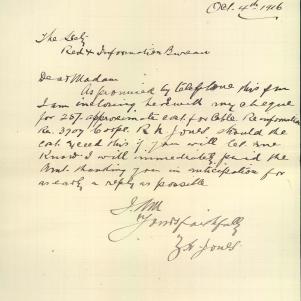 Oct. 4th 1916
The Secty
Red + Information Bureau
Dear Madam
As promised by telephone this p m
I am inclosing herewith my cheque
for 25/- approximate cost for Cable Re information
Re. 3707 Corpl. R K Jones should the
cost exceed this if you will let me
Know I will immediately
thanking you in anticipation for
as early a reply as possible
I am
Yours faithfully
Jones